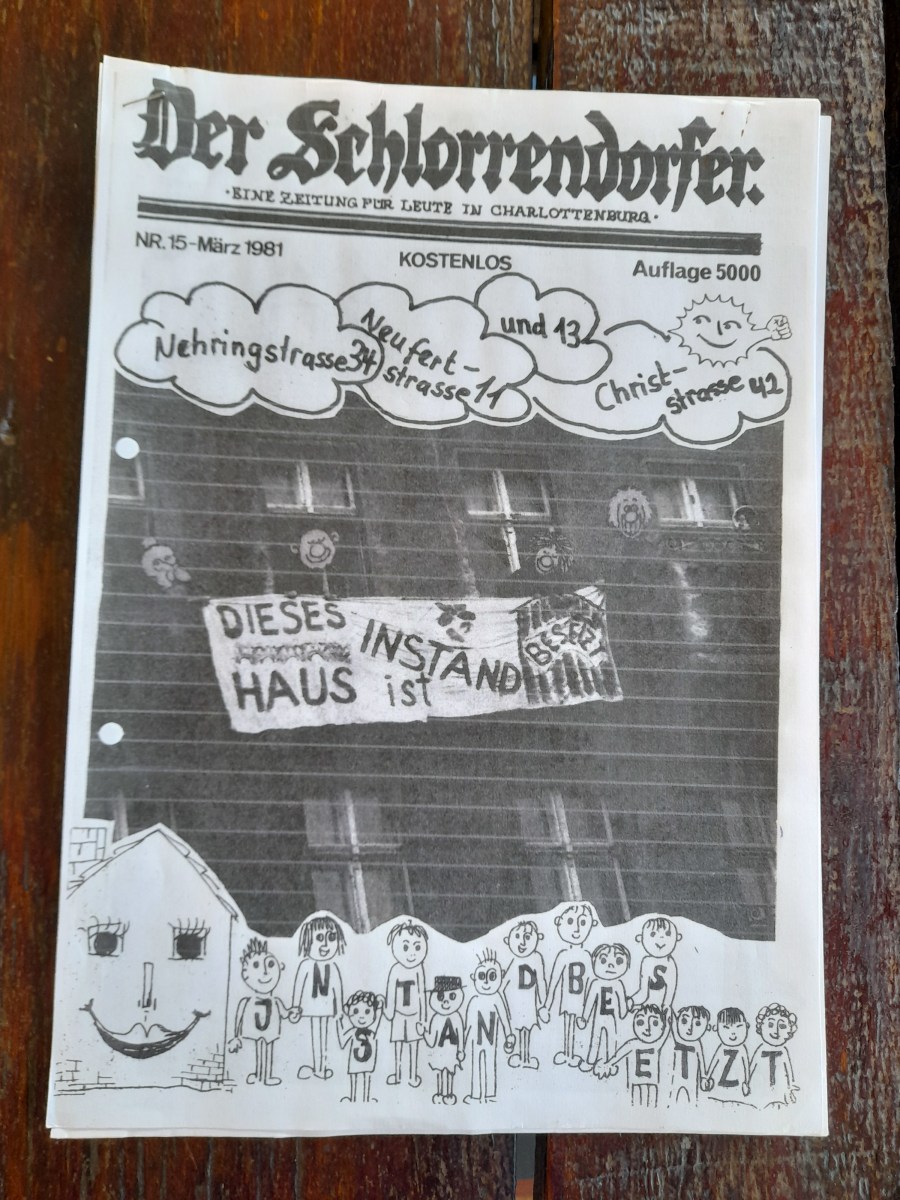 Der Schlorrendorfer.
·EINE ZEITUNG FÜR LEUTE IN CHARLOTTENBURG·
NR. 15-März 1981
KOSTENLOS
Auflage 5000
Nehringstrasse 34
Neufert-
strasse 11
und 13
Christ-
strasse 42
DIESES
HAUS ist
INSTAND
BESETZT
JNSTANDBESETZT